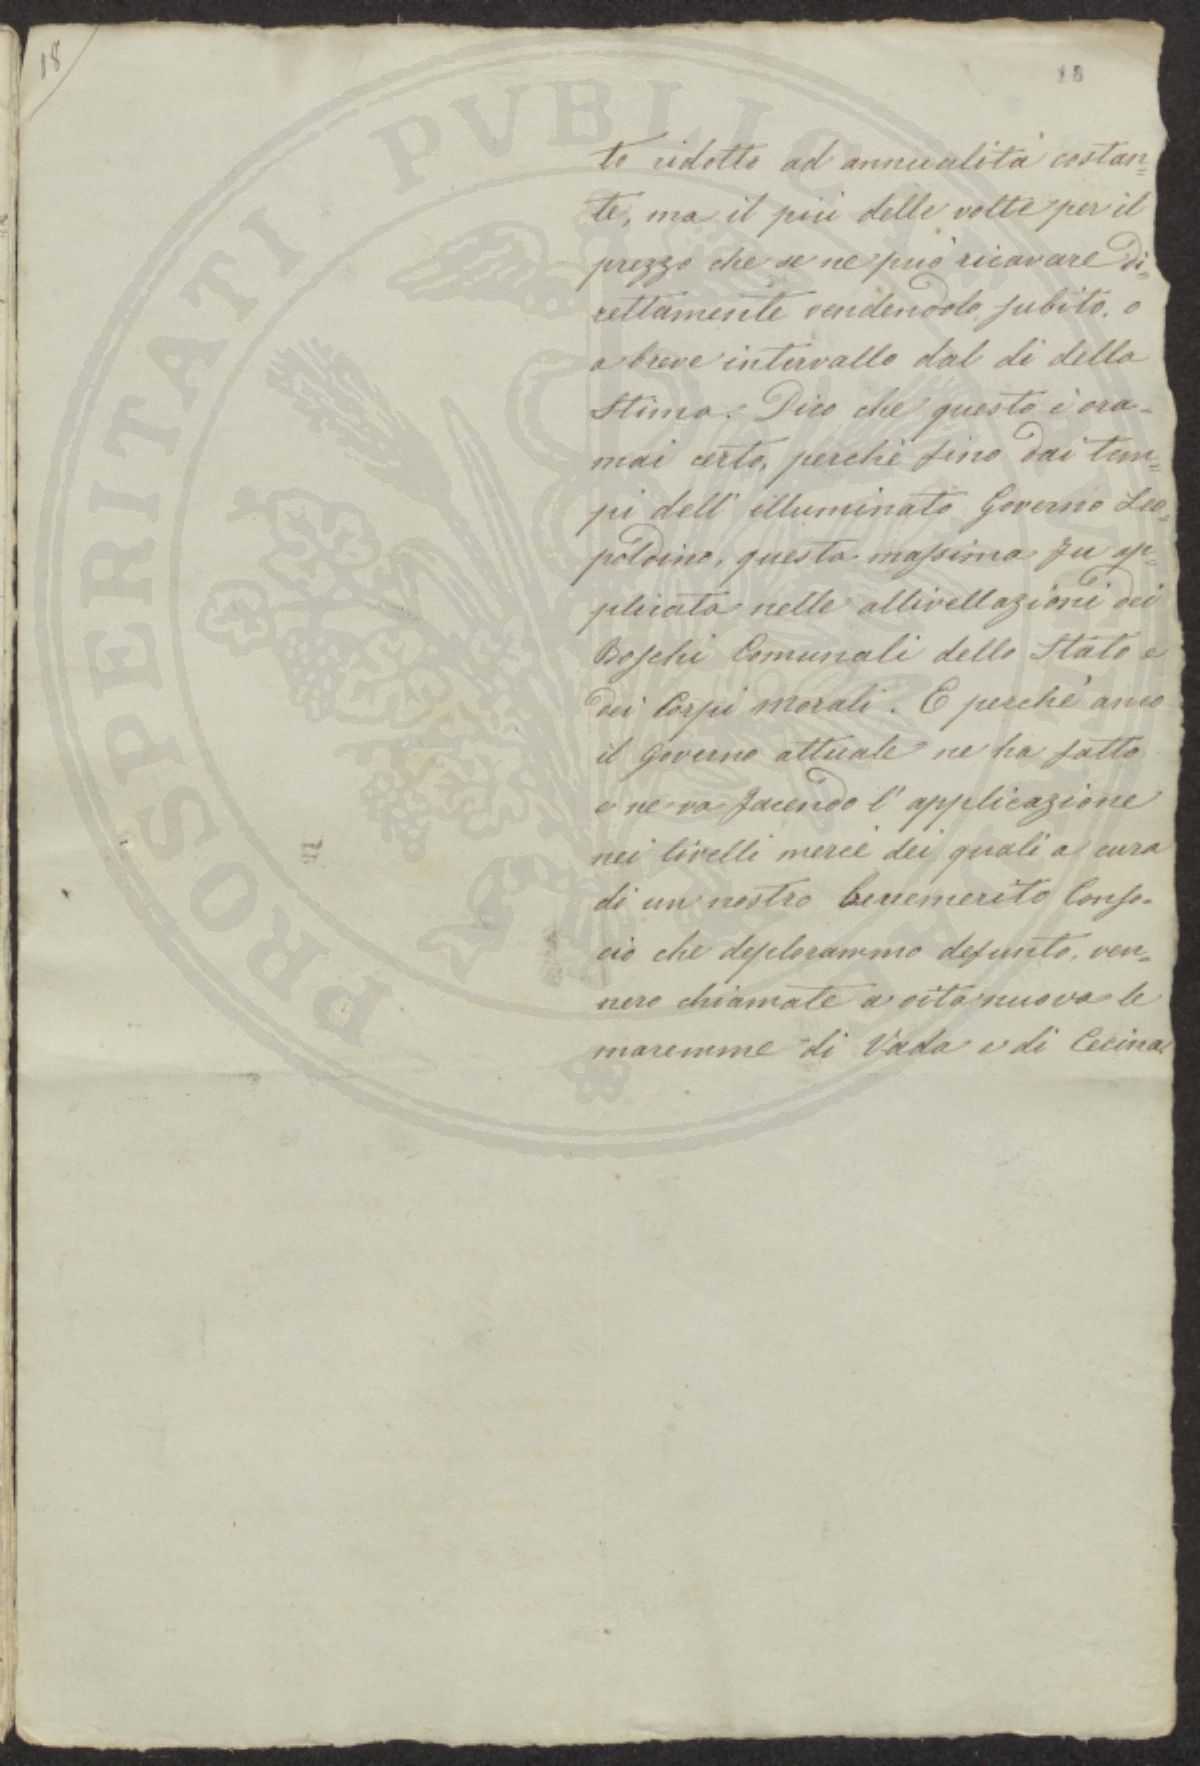 18
18
to ridotto ad annualità costan=
te, ma il più delle volte per il
prezzo che se ne può ricavare di=
rettamente vendendolo subito, o
a breve intervallo dal dì della
Stima. Dico che questo è ora=
mai certo, perchè fino dai tem=
pi dell' illuminato Governo Leo=
poldino, questa massima fu ap=
plicata nelle allivellazioni dei
Boschi Comunali dello Stato e
dei Corpi Morali. E perchè anco
il Governo attuale ne ha fatto
e ne va facendo l' applicazione
nei livelli mercè dei quali a cura
di un nostro benemerito Conso=
cio che deplorammo defunto, ven=
nero chiamate a vita nuova le
maremme di Vada e di Cecina.
PROSPERITATI PVBLICAE